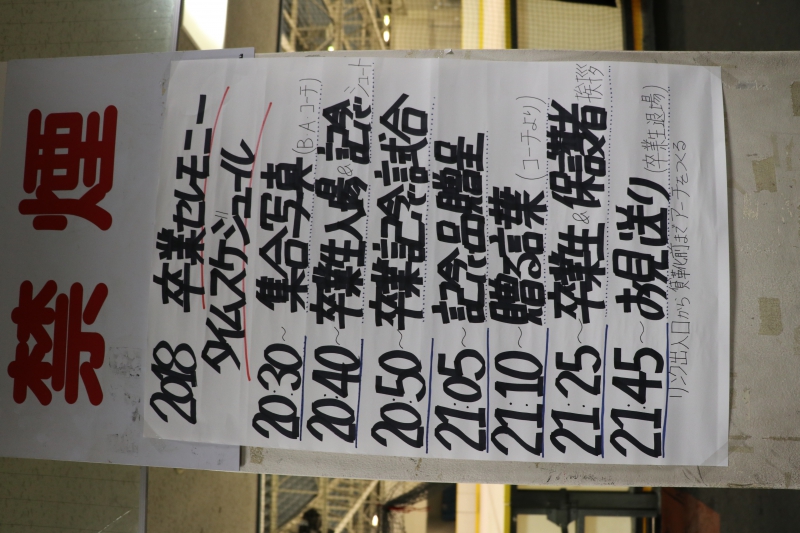 禁煙
2018 卒業セレモニー
タイムスケジュール
20:30〜 集合写真 (BAコーチ)
20:40〜 卒業生入場&記念シュート
20:50〜 卒業記念試合
21:05〜 記念品贈呈
21:10〜 贈る言葉 (コーチより)
21:25〜 卒業生&保護者挨拶
21:45〜 お見送り (卒業生退場)
リンク出入口から 貸靴前までアーチをつくる